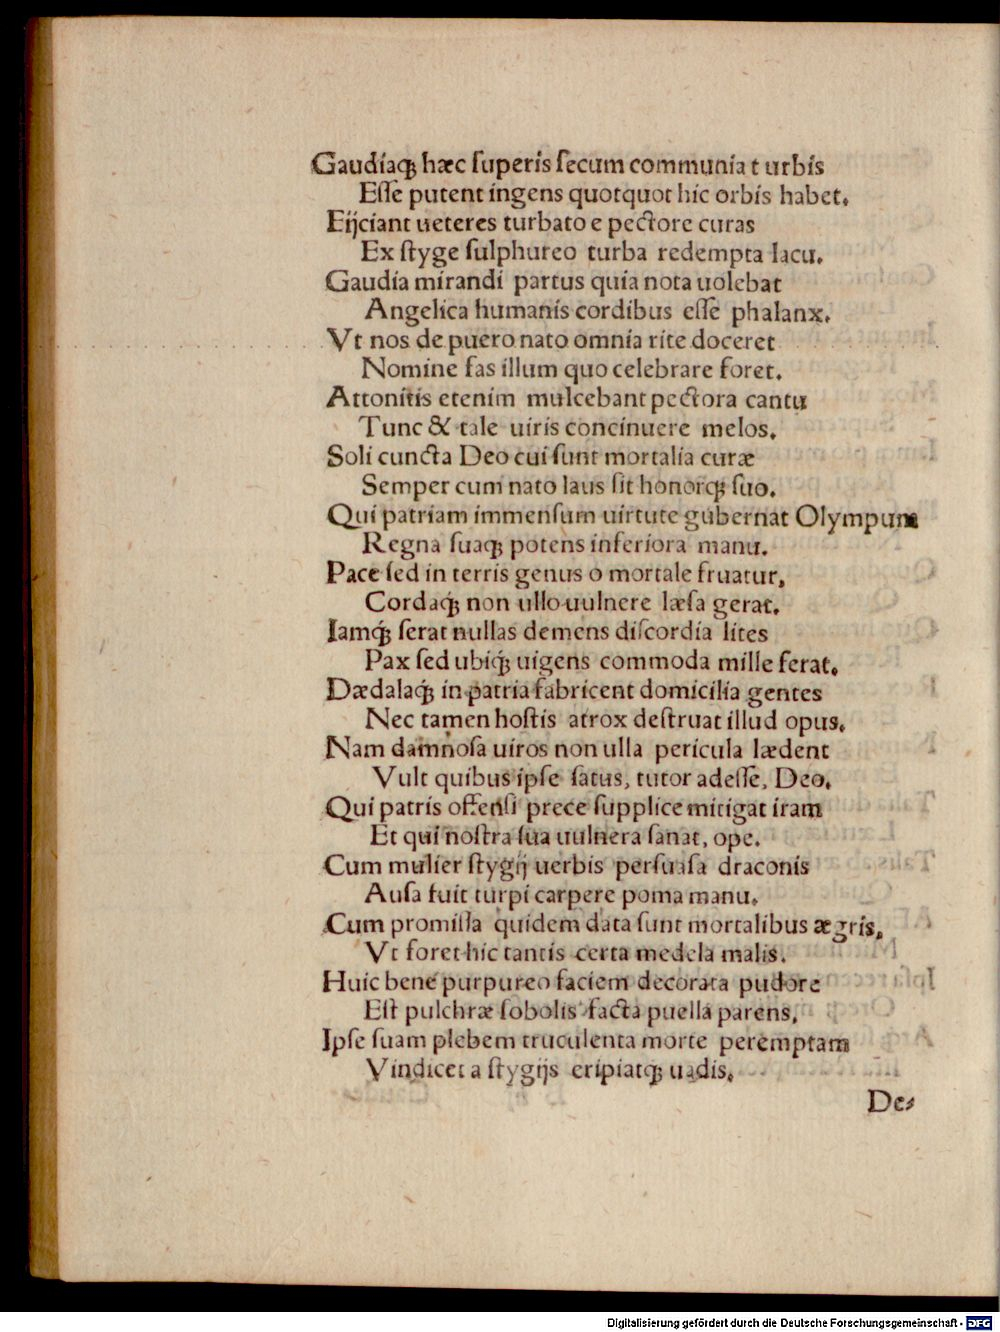 Gaudiaqꝫ hæc ſuperis ſecum communia t urbis
Eſſe putent ingens quotquot hic orbis habet.
Eijciant ueteres turbato e pectore curas
Ex ſtyge ſulphureo turba redempta lacu.
Gaudia mirandi partus quia nota uolebat
Angelica humanis cordibus eſſe phalanx.
Vt nos de puero nato omnia rite doceret
Nomine fas illum quo celebrare foret.
Attonitis etenim mulcebant pectora cantu
Tunc & tale uiris concinuere melos.
Soli cuncta Deo cui ſunt mortalia curæ
Semper cum nato laus ſit honorqꝫ ſuo.
Qui patriam immenſum uirtute gubernat Olympum
Regna ſuaqꝫ potens inferiora manu.
Pace ſed in terris genus o mortale fruatur,
Cordaq́ꝫ non ullo uulnere læſa gerat.
Iamq́ꝫ ſerat nullas demens diſcordia lites
Pax ſed ubiq́ꝫ uigens commoda mille ferat.
Dædalaq́ꝫ in patria fabricent domicilia gentes
Nec tamen hoſtis atrox deſtruat illud opus.
Nam damnoſa uiros non ulla pericula lædent
Vult quibus ipſe ſatus, tutor adeſſe, Deo.
Qui patris offenſi prece ſupplice mitigat iram
Et qui noſtra ſua uulnera ſanat, ope.
Cum mulier ſtygij uerbis perſuaſa draconis
Auſa fuit turpi carpere poma manu.
Cum promiſſa quidem data ſunt mortalibus ægris,
Vt foret hic tantis certa medela malis.
Huic bene purpureo faciem decorata pudore
Eſt pulchræ ſobolis facta puella parens,
Ipſe ſuam plebem truculenta morte peremptam
Vindicet a ſtygijs eripiatqꝫ uadis.
De⸗
Digitalisierung gefördert durch die Deutsche Forschungsgemeinschaft - DFG